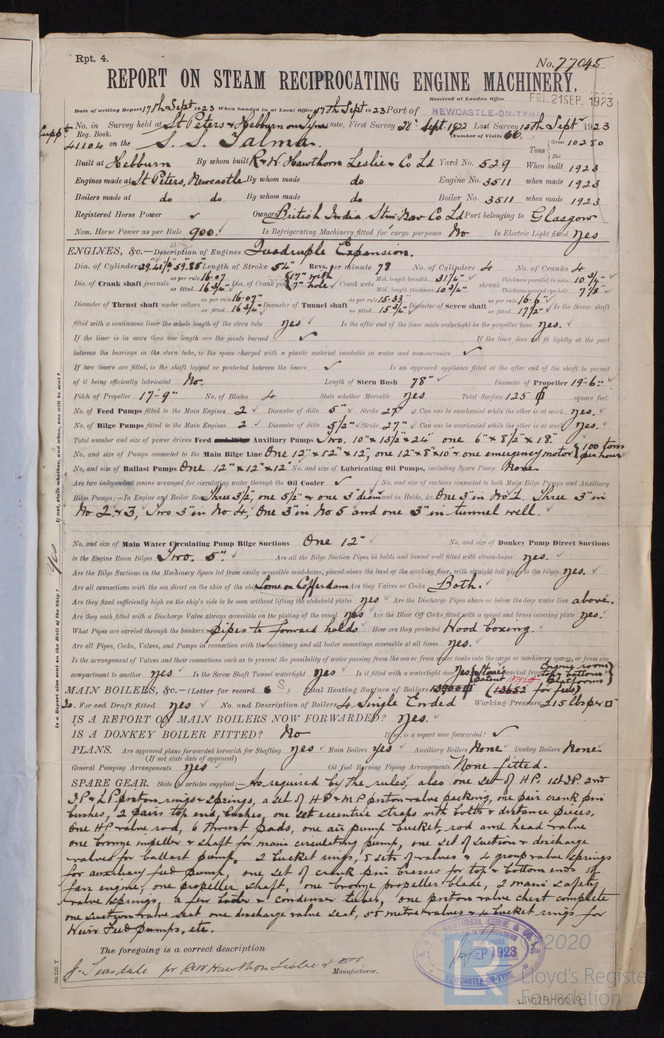 Rpt. 4.
No. 77045
REPORT ON STEAM RECIPROCATING ENGINE MACHINERY.
Received at London Office FRI. 21 SEP. 1923
Date of writing Report 17th Sept 1923 When handed in at Local Office 17th Sept 1923 Port of NEWCASTLE-ON-TYNE
No. in Survey held at St Peters & Hebburn on Tyne Date, First Survey Sept. 1922 Last Survey Sept 1923
Reg. Book. (Number of Visits 66
41104 on the S. S. Talma. Tons Gross 10250 Net
Built at Hebburn By whom built R & W Hawthorn Leslie & Co Ld Yard No. 529 When built 1923
Engines made at St Peters, Newcastle By whom made do Engine No. 3511 when made 1923
Boilers made at do do By whom made do Boiler No. 3511 when made 1923
Registered Horse Power ✓ Owners British India Stm Nav Co Ld Port belonging to Glasgow
Nom. Horse Power as per Rule 900. Is Refrigerating Machinery fitted for cargo purposes No Is Electric Light fitted yes
ENGINES, &c.—Description of Engines Quadruple Expansion.
Dia. of Cylinders Length of Stroke 54" Revs. per minute 78 No. of Cylinders 4 No. of Cranks 4
Dia. of Crank shaft journals as per rule 16.07 as fitted 16 3/4" Dia. of Crank pin 17" with 7" hole Crank webs Mid. length breadth 31 1/4" Mid. length thickness 10 3/4" shrunk Thickness parallel to axis 10 3/4" Thickness around eye-hole 7 7/8"
Diameter of Thrust shaft under collars as per rule 16.07" as fitted 16 3/4" Diameter of Tunnel shaft as per rule 15.33 as fitted 15 3/4" Diameter of Screw shaft as per rule 16.6" as fitted 17 1/2" Is the Screw shaft
fitted with a continuous liner the whole length of the stern tube yes Is the after end of the liner made watertight in the propeller boss yes.
If the liner is in more than one length are the joints burned ✓ If the liner does not fit tightly at the part
between the bearings in the stern tube, is the space charged with a plastic material insoluble in water and non-corrosive ✓
If two liners are fitted, is the shaft lapped or protected between the liners ✓ Is an approved appliance fitted at the after end of the shaft to permit
of it being efficiently lubricated No. Length of Stern Bush 78" Diameter of Propeller 19-6"
Pitch of Propeller 17-9" No. of Blades 4 State whether Moveable yes Total Surface 125 square feet.
No. of Feed Pumps fitted to the Main Engines 2 Diameter of ditto 5" Stroke 27" Can one be overhauled while the other is at work yes.
No. of Bilge Pumps fitted to the Main Engines 2 Diameter of ditto 5 1/2" Stroke 27" Can one be overhauled while the other is at work yes.
Total number and size of power driven Feed and Bilge Auxiliary Pumps Two. 10" x 13 1/2" x 24" one 6" x 8 1/2" x 18"
No. and size of Pumps connected to the Main Bilge Line One 12" x 12" x 12", one 12" x 8" x 10" & one emergency motor (100 tons per hour)
No. and size of Ballast Pumps One 12" x 12" x 12" No. and size of Lubricating Oil Pumps, including Spare Pump None
Are two independent means arranged for circulating water through the Oil Cooler ✓ No. and size of suctions connected to both Main Bilge Pumps and Auxiliary
Bilge Pumps;—In Engine and Boiler Room Three 3 1/2, one 5 1/2" & one 3" diam and in Holds, &c. One 3" in No 1. Three 3" in
No 2 & 3, Two 3" in No 4, One 3" in No 5 and one 3" in tunnel well.
No. and size of Main Water Circulating Pump Bilge Suctions One 12" No. and size of Donkey Pump Direct Suctions
to the Engine Room Bilges Two. 5". Are all the Bilge Suction Pipes in holds and tunnel well fitted with strum-boxes yes.
Are the Bilge Suctions in the Machinery Space led from easily accessible mud-boxes, placed above the level of the working floor, with straight tail pipes to the bilges yes.
Are all connections with the sea direct on the skin of the ship Some on Cofferdam Are they Valves or Cocks Both.
Are they fixed sufficiently high on the ship's side to be seen without lifting the stokehold plates yes Are the Discharge Pipes above or below the deep water line above.
Are they each fitted with a Discharge Valve always accessible on the plating of the vessel yes Are the Blow Off Cocks fitted with a spigot and brass covering plate yes.
What Pipes are carried through the bunkers pipes to forward holds How are they protected Wood boxing.
Are all Pipes, Cocks, Valves, and Pumps in connection with the machinery and all boiler mountings accessible at all times yes.
Is the arrangement of Valves and their connections such as to prevent the possibility of water passing from the sea or from water tanks into the cargo or machinery spaces, or from one
compartment to another yes Is the Screw Shaft Tunnel watertight yes Is it fitted with a watertight door yes worked from Engine room top & bottom platforms
MAIN BOILERS, &c.—(Letter for record S) Total Heating Surface of Boilers (13652 for fees)
Is Forced Draft fitted yes No. and Description of Boilers 4 Single Ended Working Pressure 215 lbs per □
IS A REPORT ON MAIN BOILERS NOW FORWARDED? yes.
IS A DONKEY BOILER FITTED? No If so, is a report now forwarded? ✓
PLANS. Are approved plans forwarded herewith for Shafting yes Main Boilers yes Auxiliary Boilers None Donkey Boilers None.
(If not state date of approval)
General Pumping Arrangements yes Oil fuel Burning Piping Arrangements None fitted.
SPARE GEAR. State the articles supplied:— As required by the rules, also one set of HP. 1st IP 2nd
IP & LP piston rings & springs, a set of HP & MP piston valve packing, one pair crank pin
bushes, 2 pairs top end bushes, one set eccentric straps with bolts & distance pieces,
One HP valve rod, 6 thrust pads, one air pump bucket, rod and head valve
one bronze impeller & shaft for main circulating pump, one set of suction & discharge
valves for ballast pump, 2 bucket rings, 5 sets of valves & 4 group valve springs
for auxiliary feed pump, one set of crank pin brasses for top & bottom ends of
fan engine, one propeller shaft, one bronze propeller blade, 2 main safety
valve springs, a few boiler & condenser tubes, one piston valve chest complete
one suction valve seat one discharge valve seat, 55 metal valves & 4 bucket rings for
Weirs Feed pumps, etc.
The foregoing is a correct description
J. Teasdale for R & W Hawthorn Leslie & Co Ld Manufacturer.
SEP 1923
NEWCASTLE-ON-TYNE
© 2020
Lloyd's Register
Foundation